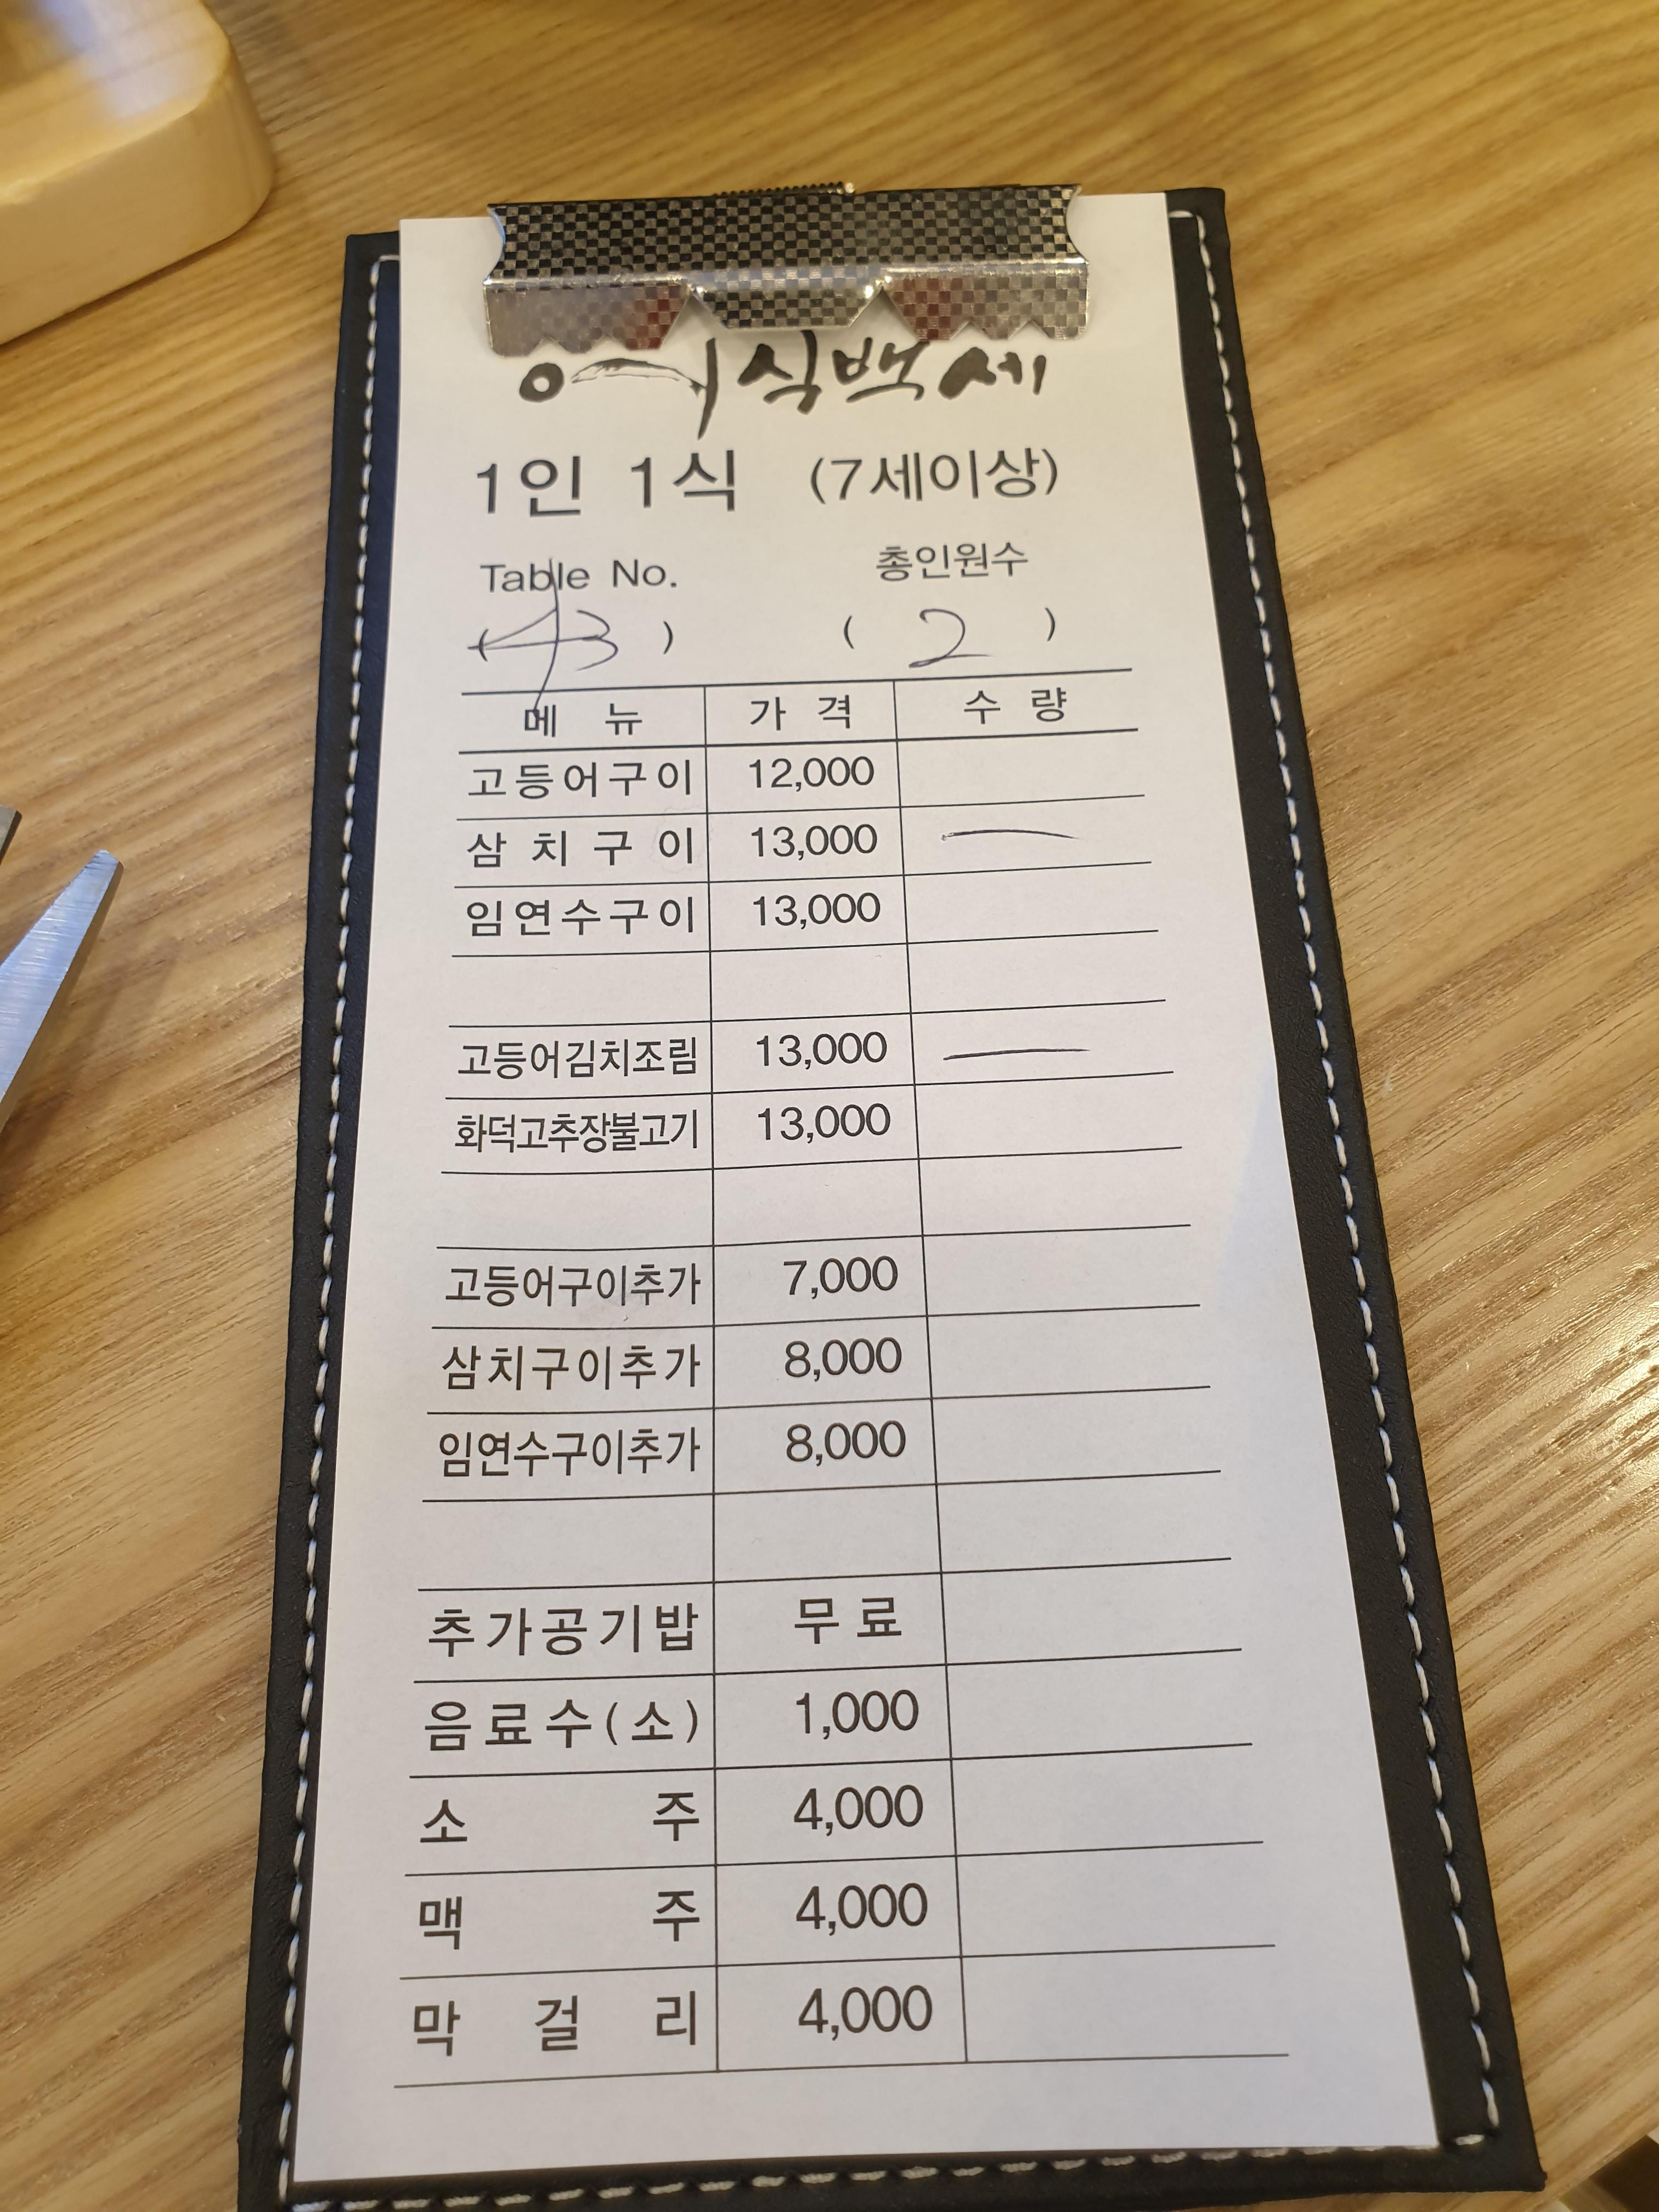 어식백세
1인 1식 (7세이상)
Table No. 총인원수
(43) (2)
메뉴 가격 수량
고등어구이 12,000
삼치구이 13,000 一
임연수구이 13,000
고등어김치조림 13,000 一
화덕고추장불고기 13,000
고등어구이추가 7,000
삼치구이추가 8,000
임연수구이추가 8,000
추가공기밥 무료
음료수(소) 1,000
소주 4,000
맥주 4,000
막걸리 4,000